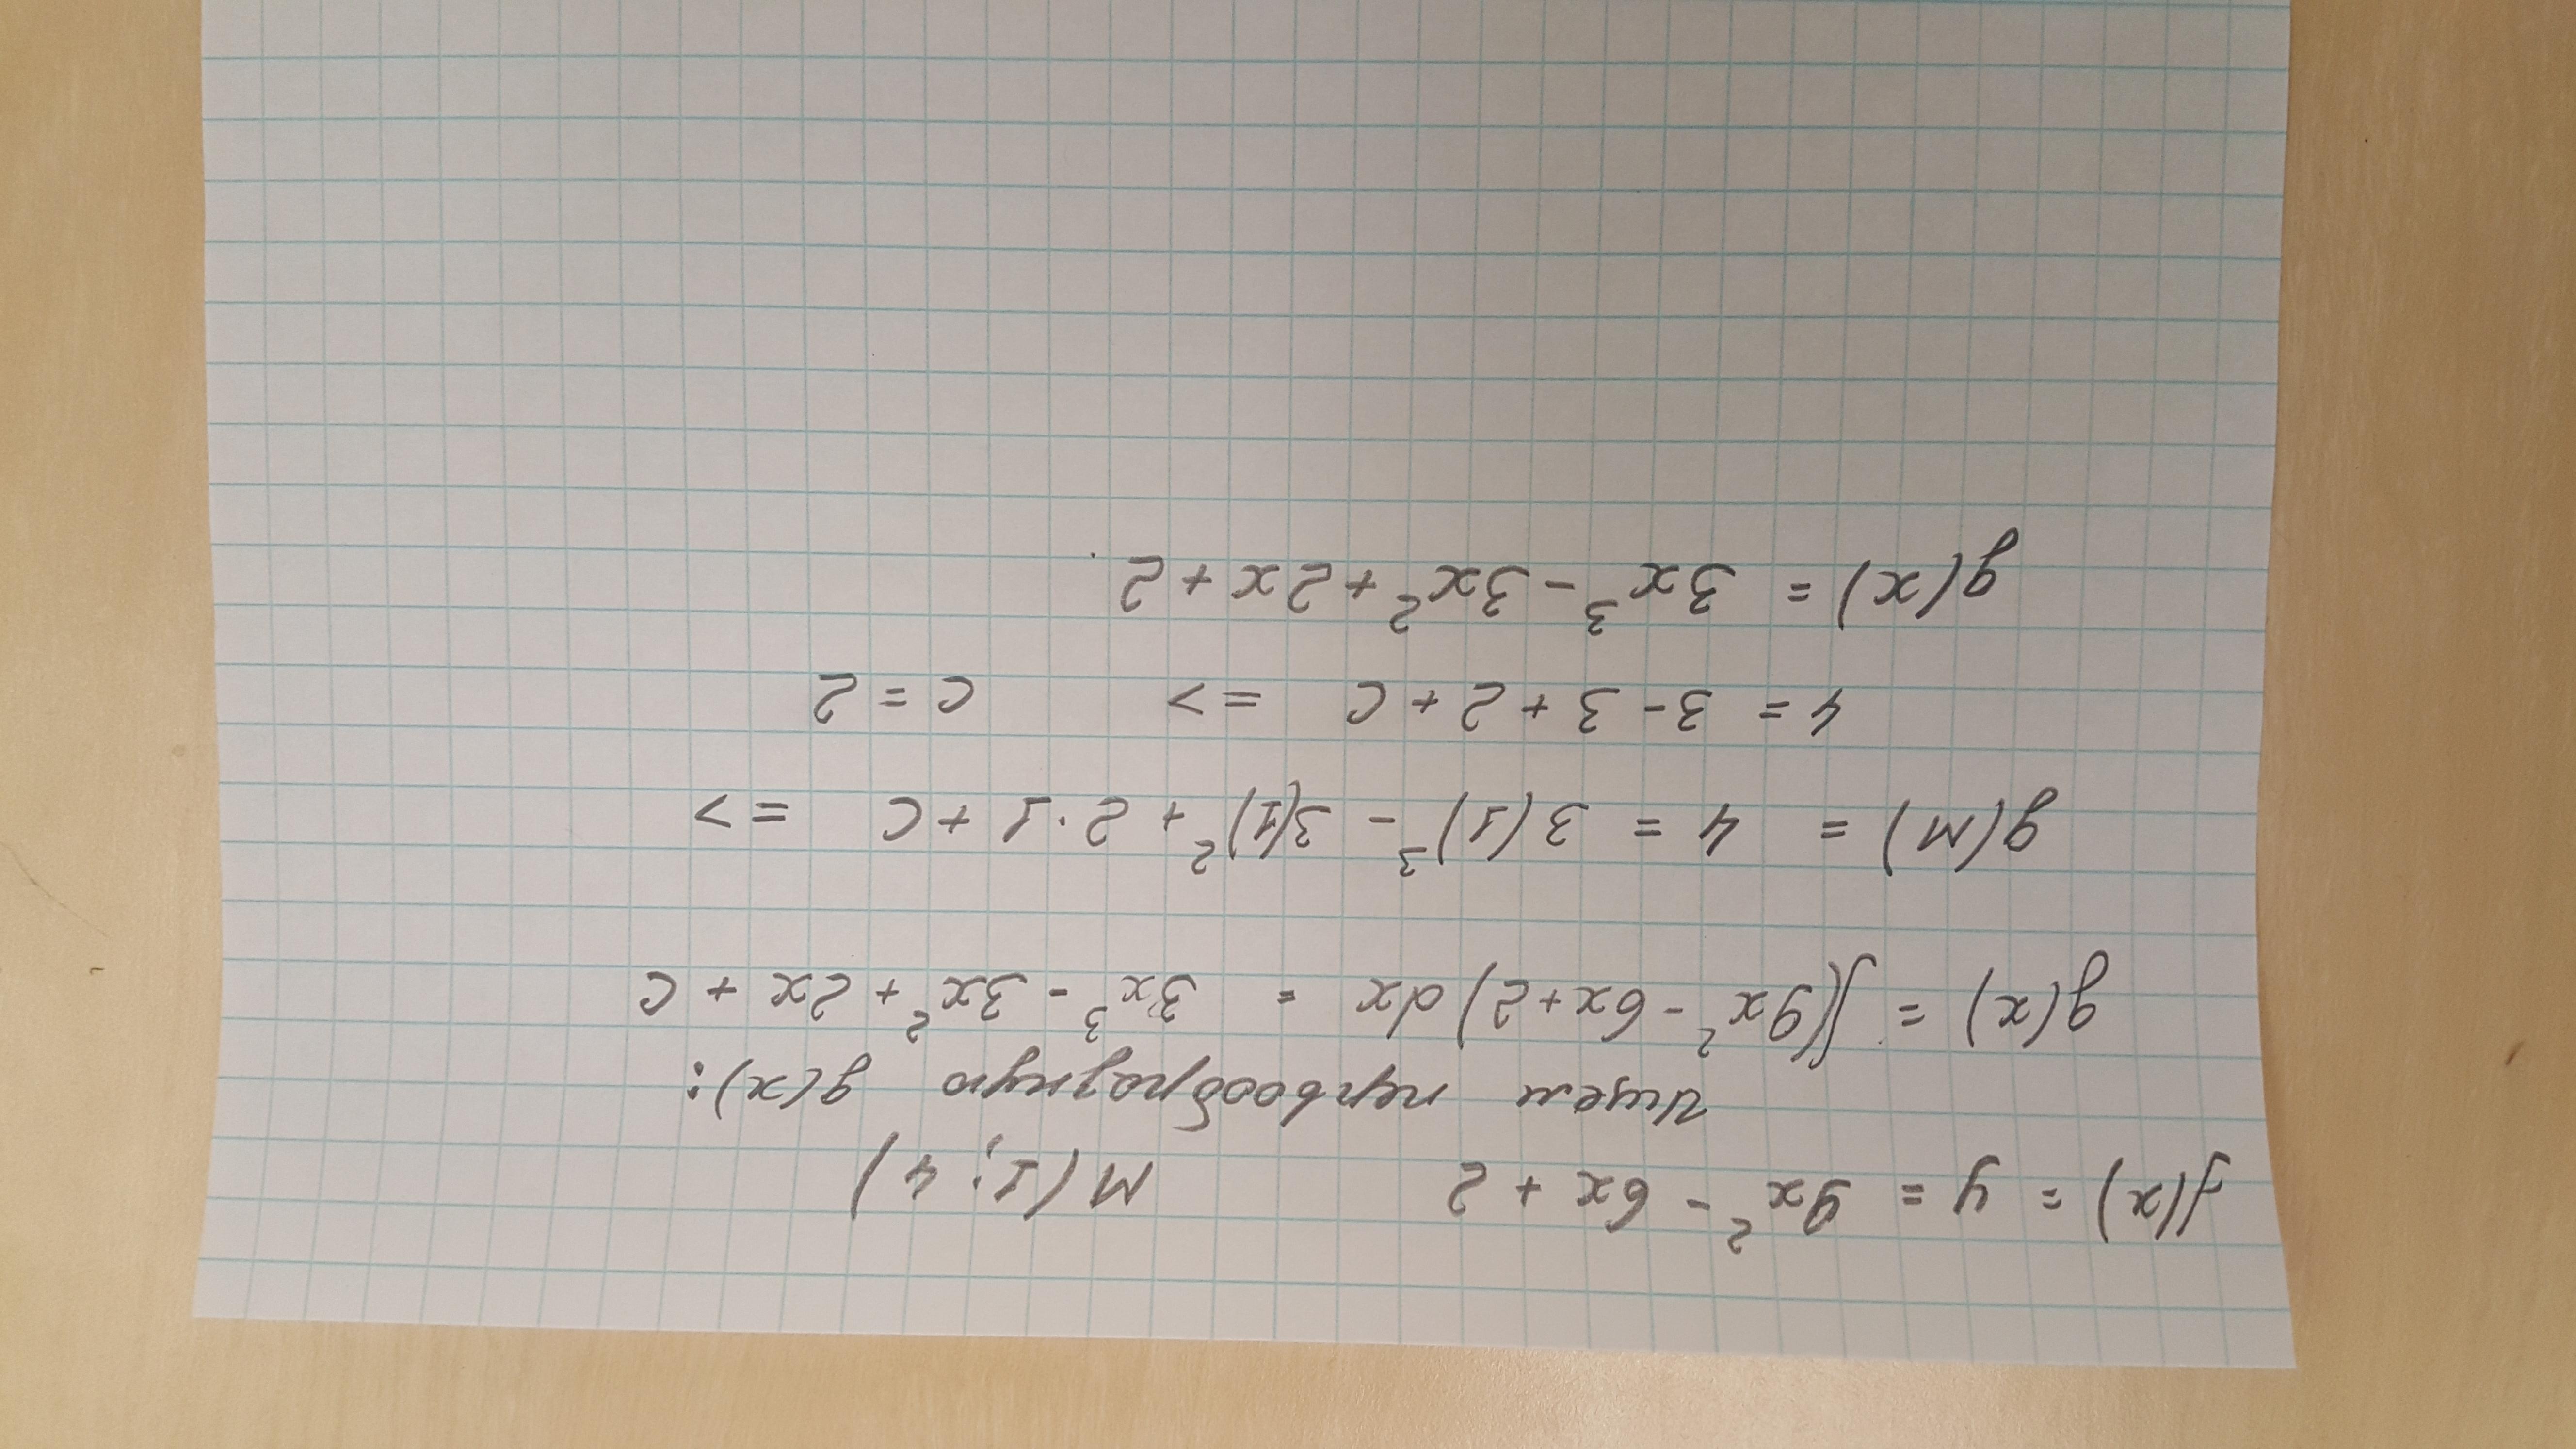 f(x) = y = 9x² - 6x + 2 M(1; 4)
Ищем первообразную g(x):
g(x) = ∫(9x² - 6x + 2) dx = 3x³ - 3x² + 2x + C
g(M) = 4 = 3(1)³ - 3(1)² + 2·1 + C =>
4 = 3 - 3 + 2 + C => C = 2
g(x) = 3x³ - 3x² + 2x + 2.